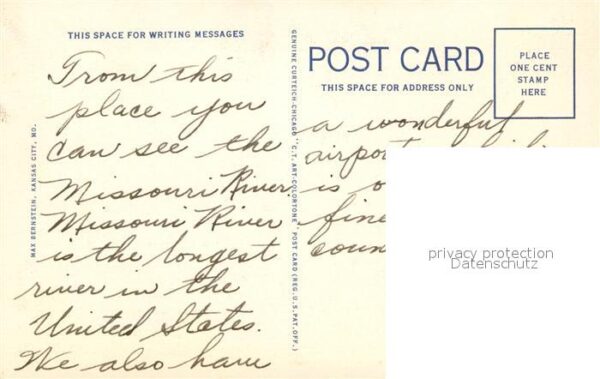 THIS SPACE FOR WRITING MESSAGES
From this
place you
can see the
Missouri River.
Missouri River
is the longest
river in the
United States.
We also have
MAX BERNSTEIN, KANSAS CITY, MO.
GENUINE CURTEICH-CHICAGO "C.T. ART-COLORTONE" POST CARD (REG. U.S. PAT. OFF.)
POST CARD
THIS SPACE FOR ADDRESS ONLY
PLACE
ONE CENT
STAMP
HERE
a wonderful
airport
is
fine
coun
privacy protection
Datenschutz